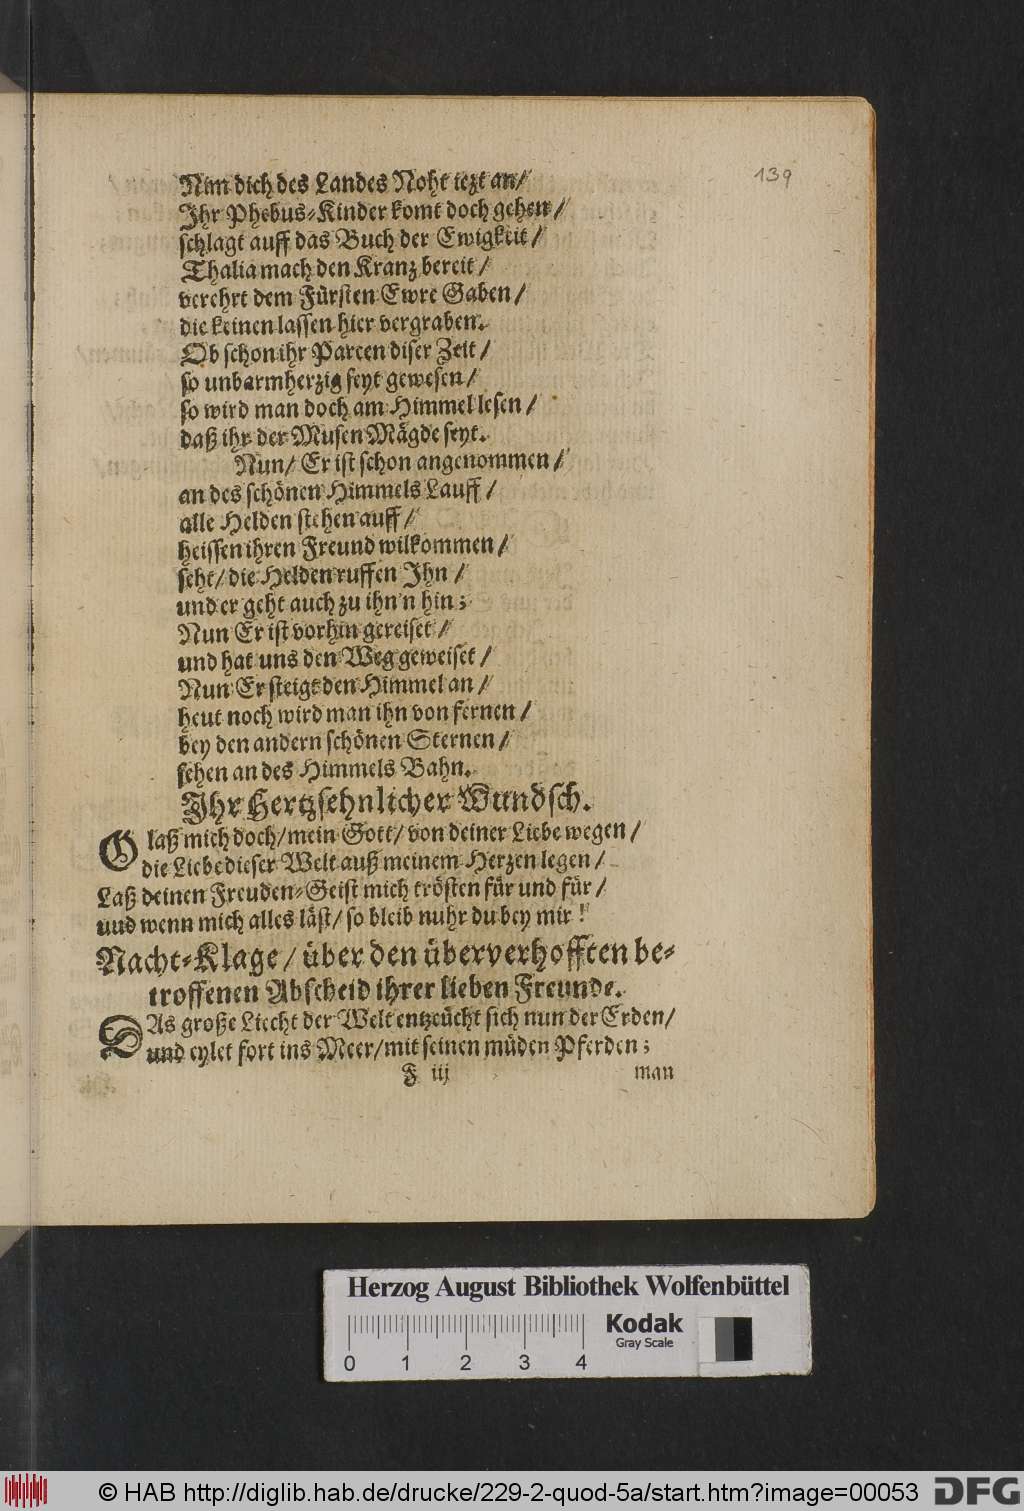 139
Nim dich des Landes Noht iezt an/
Ihr Phebus-Kinder komt doch gehen/
schlagt auff das Buch der Ewigkeit/
Thalia mach den Kranz bereit/
verehrt dem Fürsten Ewre Gaben/
die keinen lassen hier vergraben.
Ob schon ihr Parcen diser Zeit/
so unbarmherzig seyt gewesen/
so wird man doch am Himmel lesen/
daß ihr der Musen Mägde seyt.
Nun/ Er ist schon angenommen/
an des schönen Himmels Lauff/
alle Helden stehen auff/
heissen ihren Freund wilkommen/
seht/ die Helden ruffen Ihn/
und er geht auch zu ihn'n hin;
Nun Er ist vorhin gereiset/
und hat uns den Weg geweiset/
Nun Er steigt den Himmel an/
heut noch wird man ihn von fernen/
bey den andern schönen Sternen/
sehen an des Himmels Bahn.
Ihr Hertzsehnlicher Wundsch.
O laß mich doch/ mein Gott/ von deiner Liebe wegen/
die Liebe dieser Welt auß meinem Herzen legen/
Laß deinen Freuden-Geist mich trösten für und für/
und wenn mich alles läst/ so bleib nuhr du bey mir!
Nacht-Klage/ über den überverhofften be-
troffenen Abscheid ihrer lieben Freunde.
DAs große Liecht der Welt entzeücht sich nun der Erden/
und eylet fort ins Meer/ mit seinen müden Pferden;
F iij man
Herzog August Bibliothek Wolfenbüttel
Kodak
Gray Scale
0 1 2 3 4
© HAB http://diglib.hab.de/drucke/229-2-quod-5a/start.htm?image=00053
DFG